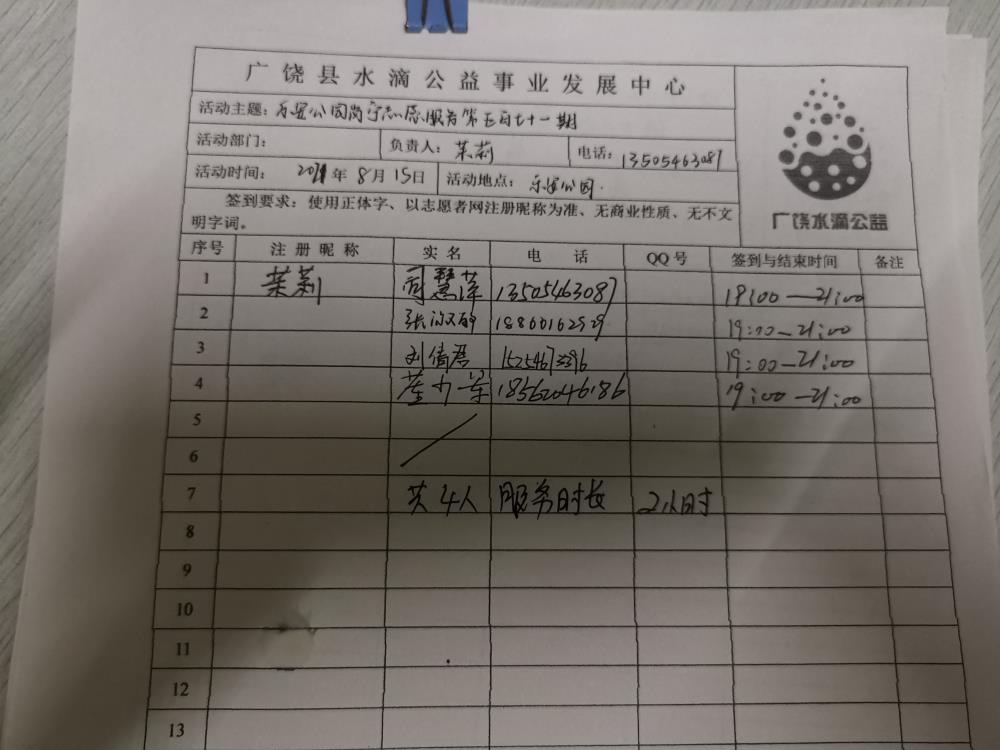 广饶县水滴公益事业发展中心
活动主题：乐安公园岗亭志愿服务第五百七十一期
活动部门： 负责人：茉莉 电话：13505463087
活动时间：2021年8月15日 活动地点：乐安公园.
签到要求：使用正体字、以志愿者网注册昵称为准、无商业性质、无不文
明字词。
广饶水滴公益
序号 注册昵称 实名 电话 QQ号 签到与结束时间 备注
1 茉莉 13505463087 19:00—21:00
2 张 19:00—21:00
3 刘倩君 19:00—21:00
4 18562046186 19:00—21:00
5
6
7 共4人 服务时长 2小时
8
9
10
11
12
13